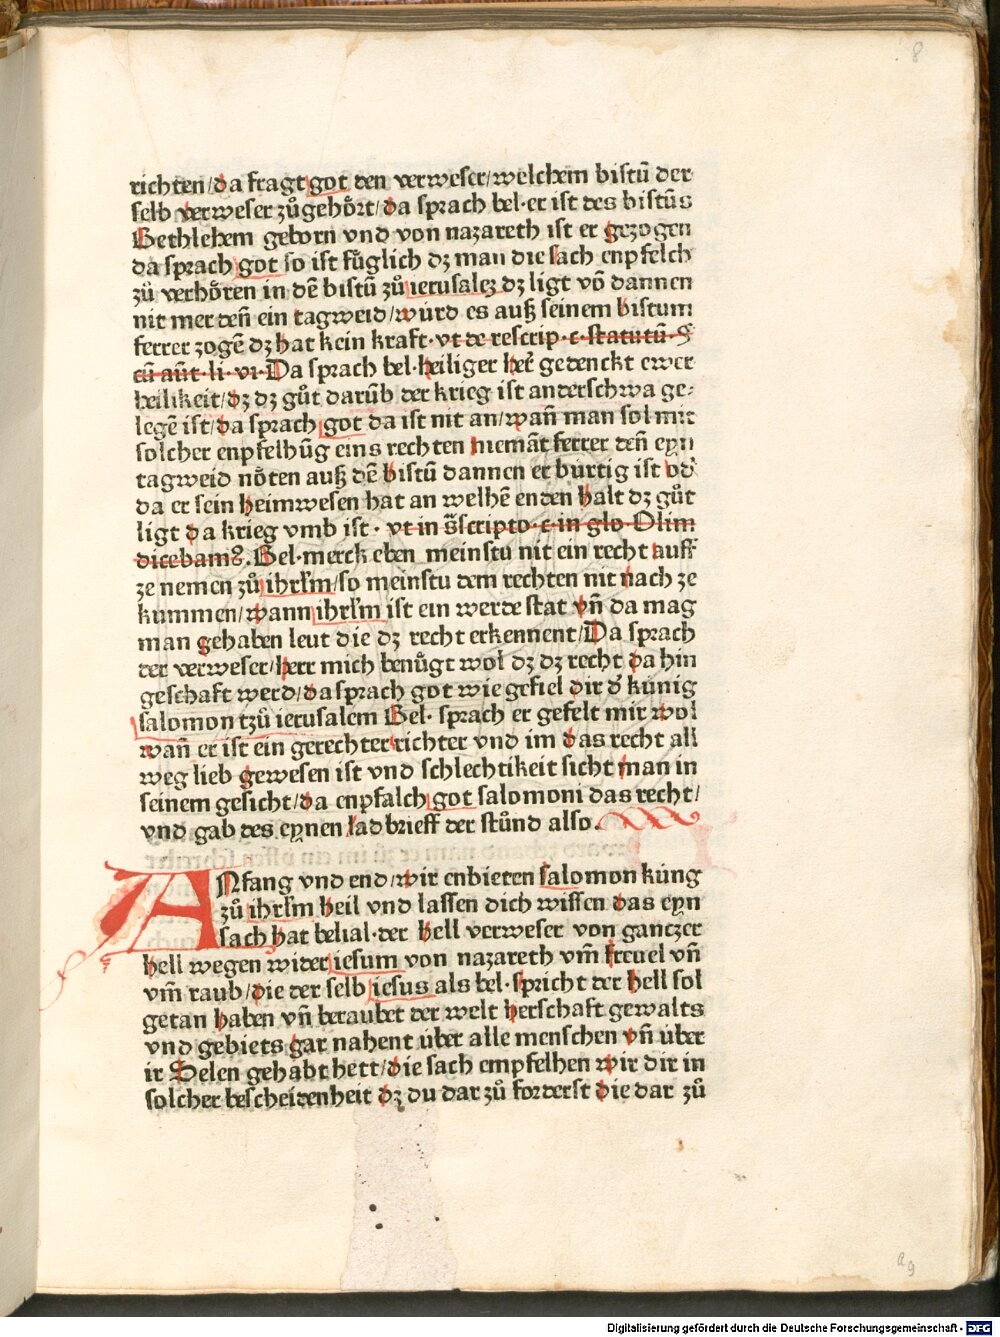 8
richten/da fragt got den verweser/welchem bistū der
selb verweser zůgehört/da sprach bel·er ist des bistūs
Bethlehem geborn vnd von nazareth ist er gezogen
da sprach got so ist fůglich dz man die sach enpfelch
zů verhören in dē bistū zů ierusalez dz ligt vō dannen
nit mer deñ ein tagweid/würd es auß seinem bistum
ferrer zogē dz hat kein kraft·vt de rescrip·c·statutū·§
cū aūt·li·vi·Da sprach bel·heiliger her̄ gedenckt ewer
heilikeit/dz dz gůt darūb der krieg ist anderschwa ge⸗
legē ist/da sprach got da ist nit an/wañ man sol mit
solcher enpfelhūg eins rechten niemāt ferrer deñ eyn
tagweid nöten auß dē bistū dannen er bürtig ist od̄
da er sein heimwesen hat an welhē enden halt dz gůt
ligt da krieg vmb ist · vt in s̄scripto·c·in glo·Olim
dicebamꝰ. Bel·merck eben meinstu nit ein recht auff
ze nemen zů ihrl̄m/so meinstu dem rechten nit nach ze
kummen/wann ihrl̄m ist ein werde stat vñ da mag
man gehaben leut die dz recht erkennent/Da sprach
der verweser/herr mich benůgt wol dz dz recht da hin
geschaft werd/da sprach got wie gefiel dir d̄ künig
salomon tzů ierusalem Bel· sprach er gefelt mir wol
wañ er ist ein gerechter richter vnd im das recht all
weg lieb gewesen ist vnd schlechtikeit sicht man in
seinem gesicht/da enpfalch got salomoni das recht/
vnd gab des eynen ladbrieff der stůnd also.
ANfang vnd end/wir enbieten salomon küng
zů ihrl̄m heil vnd lassen dich wissen das eyn
sach hat belial·der hell verweser von ganczer
hell wegen wider iesum von nazareth vm̄ freuel vñ
vm̄ raub/die der selb iesus als bel·spricht der hell sol
getan haben vñ beraubet der welt herschaft gewalts
vnd gebiets gar nahent über alle menschen vñ über
ir Selen gehabt hett/die sach empfelhen wir dir in
solcher bescheidenheit dz du dar zů forderst die dar zů
a9
Digitalisierung gefördert durch die Deutsche Forschungsgemeinschaft - DFG